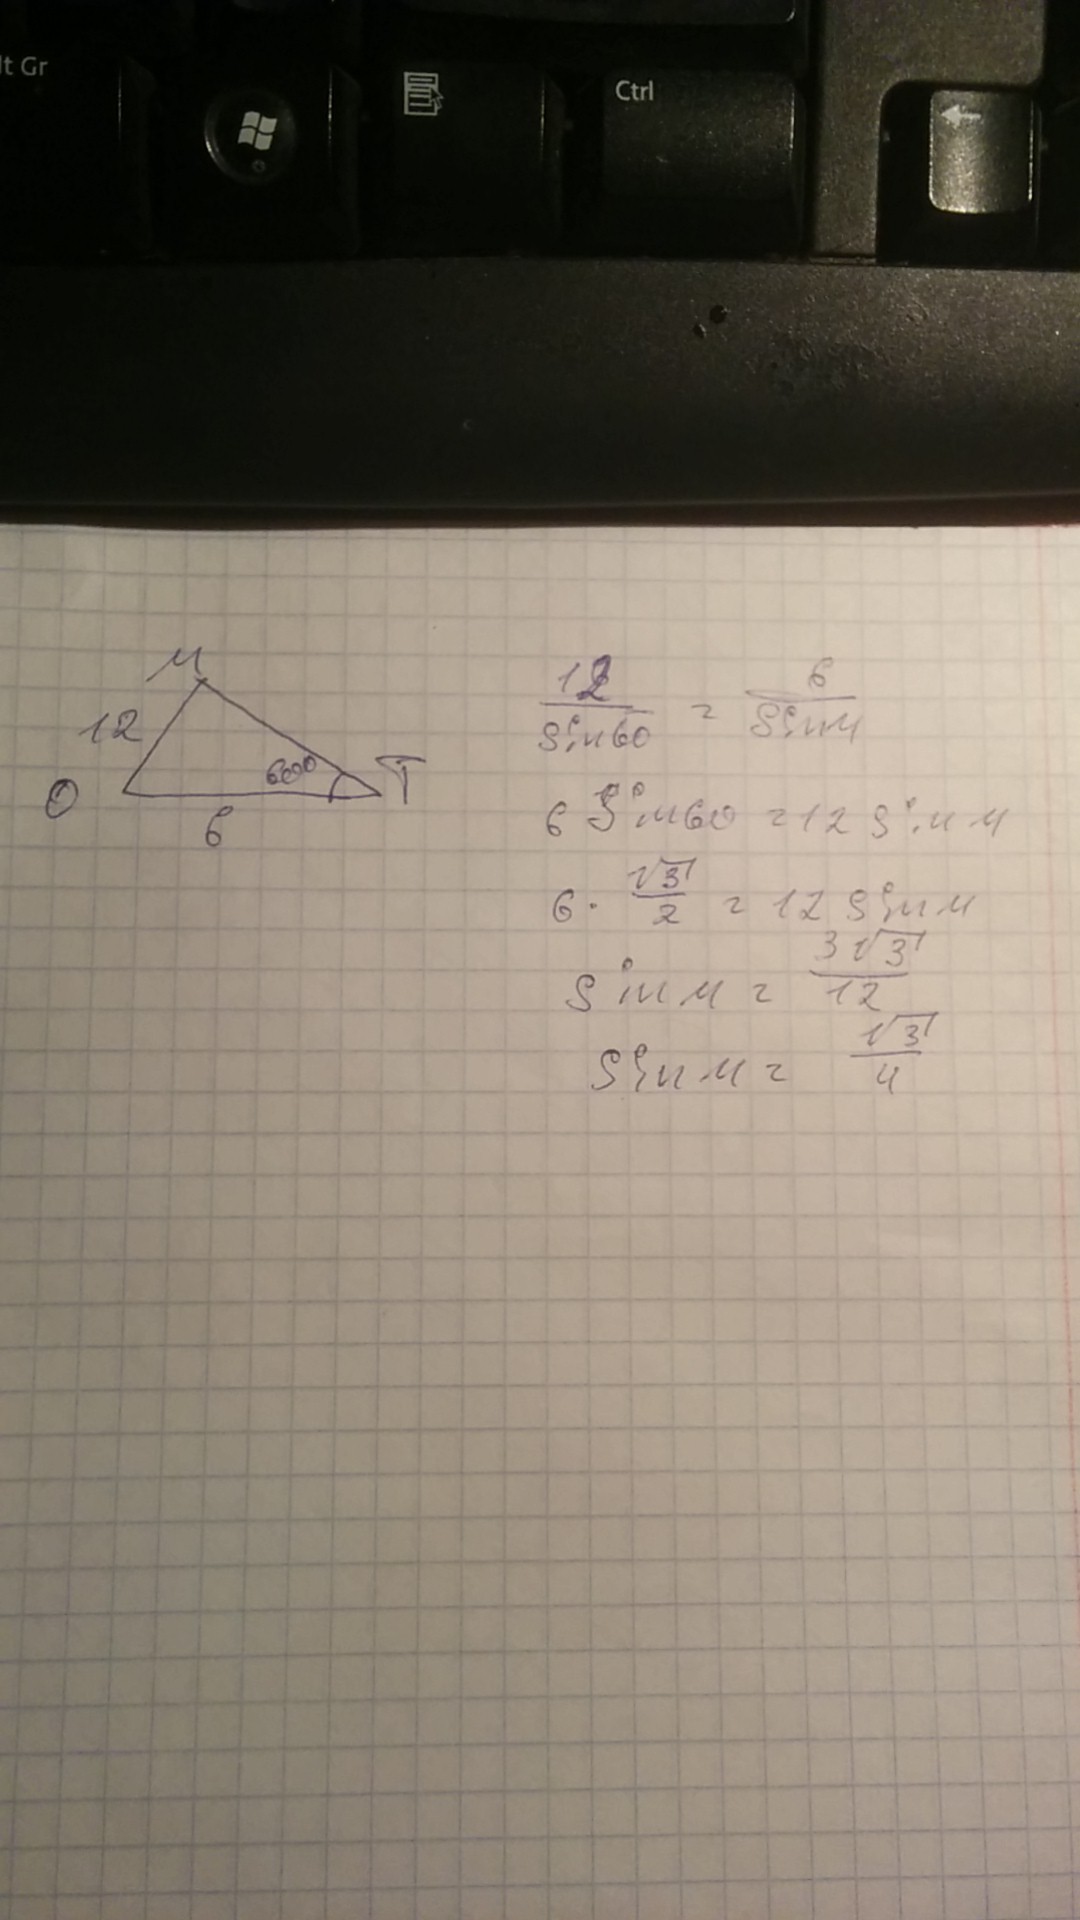 lt Gr
Ctrl
M
12
60°
T
O
6
12/sin60 = 6/sinM
6 sin60 = 12 sin M
6 · √3/2 = 12 sin M
sin M = 3√3/12
sin M = √3/4